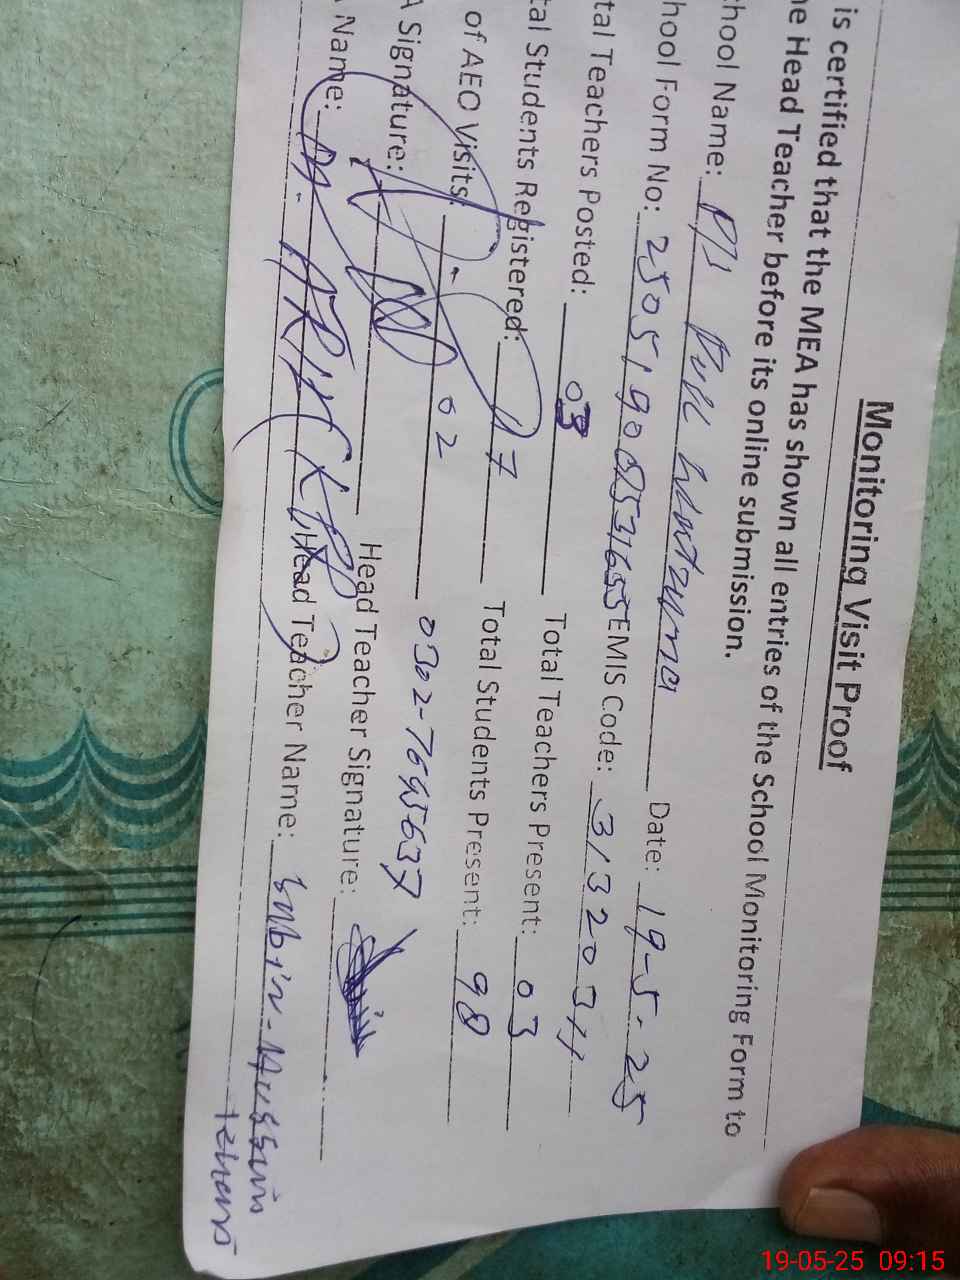 Monitoring Visit Proof
is certified that the MEA has shown all entries of the School Monitoring Form to
he Head Teacher before its online submission.
chool Name: Date: 19-5-25
hool Form No: EMIS Code: 3132034
tal Teachers Posted: 03 Total Teachers Present: 03
tal Students Registered: 117 Total Students Present: 98
of AEO Visits: 02 0302-7695637
A Signature: Head Teacher Signature:
A Name: M. ARIF Head Teacher Name:
19-05-25 09:15